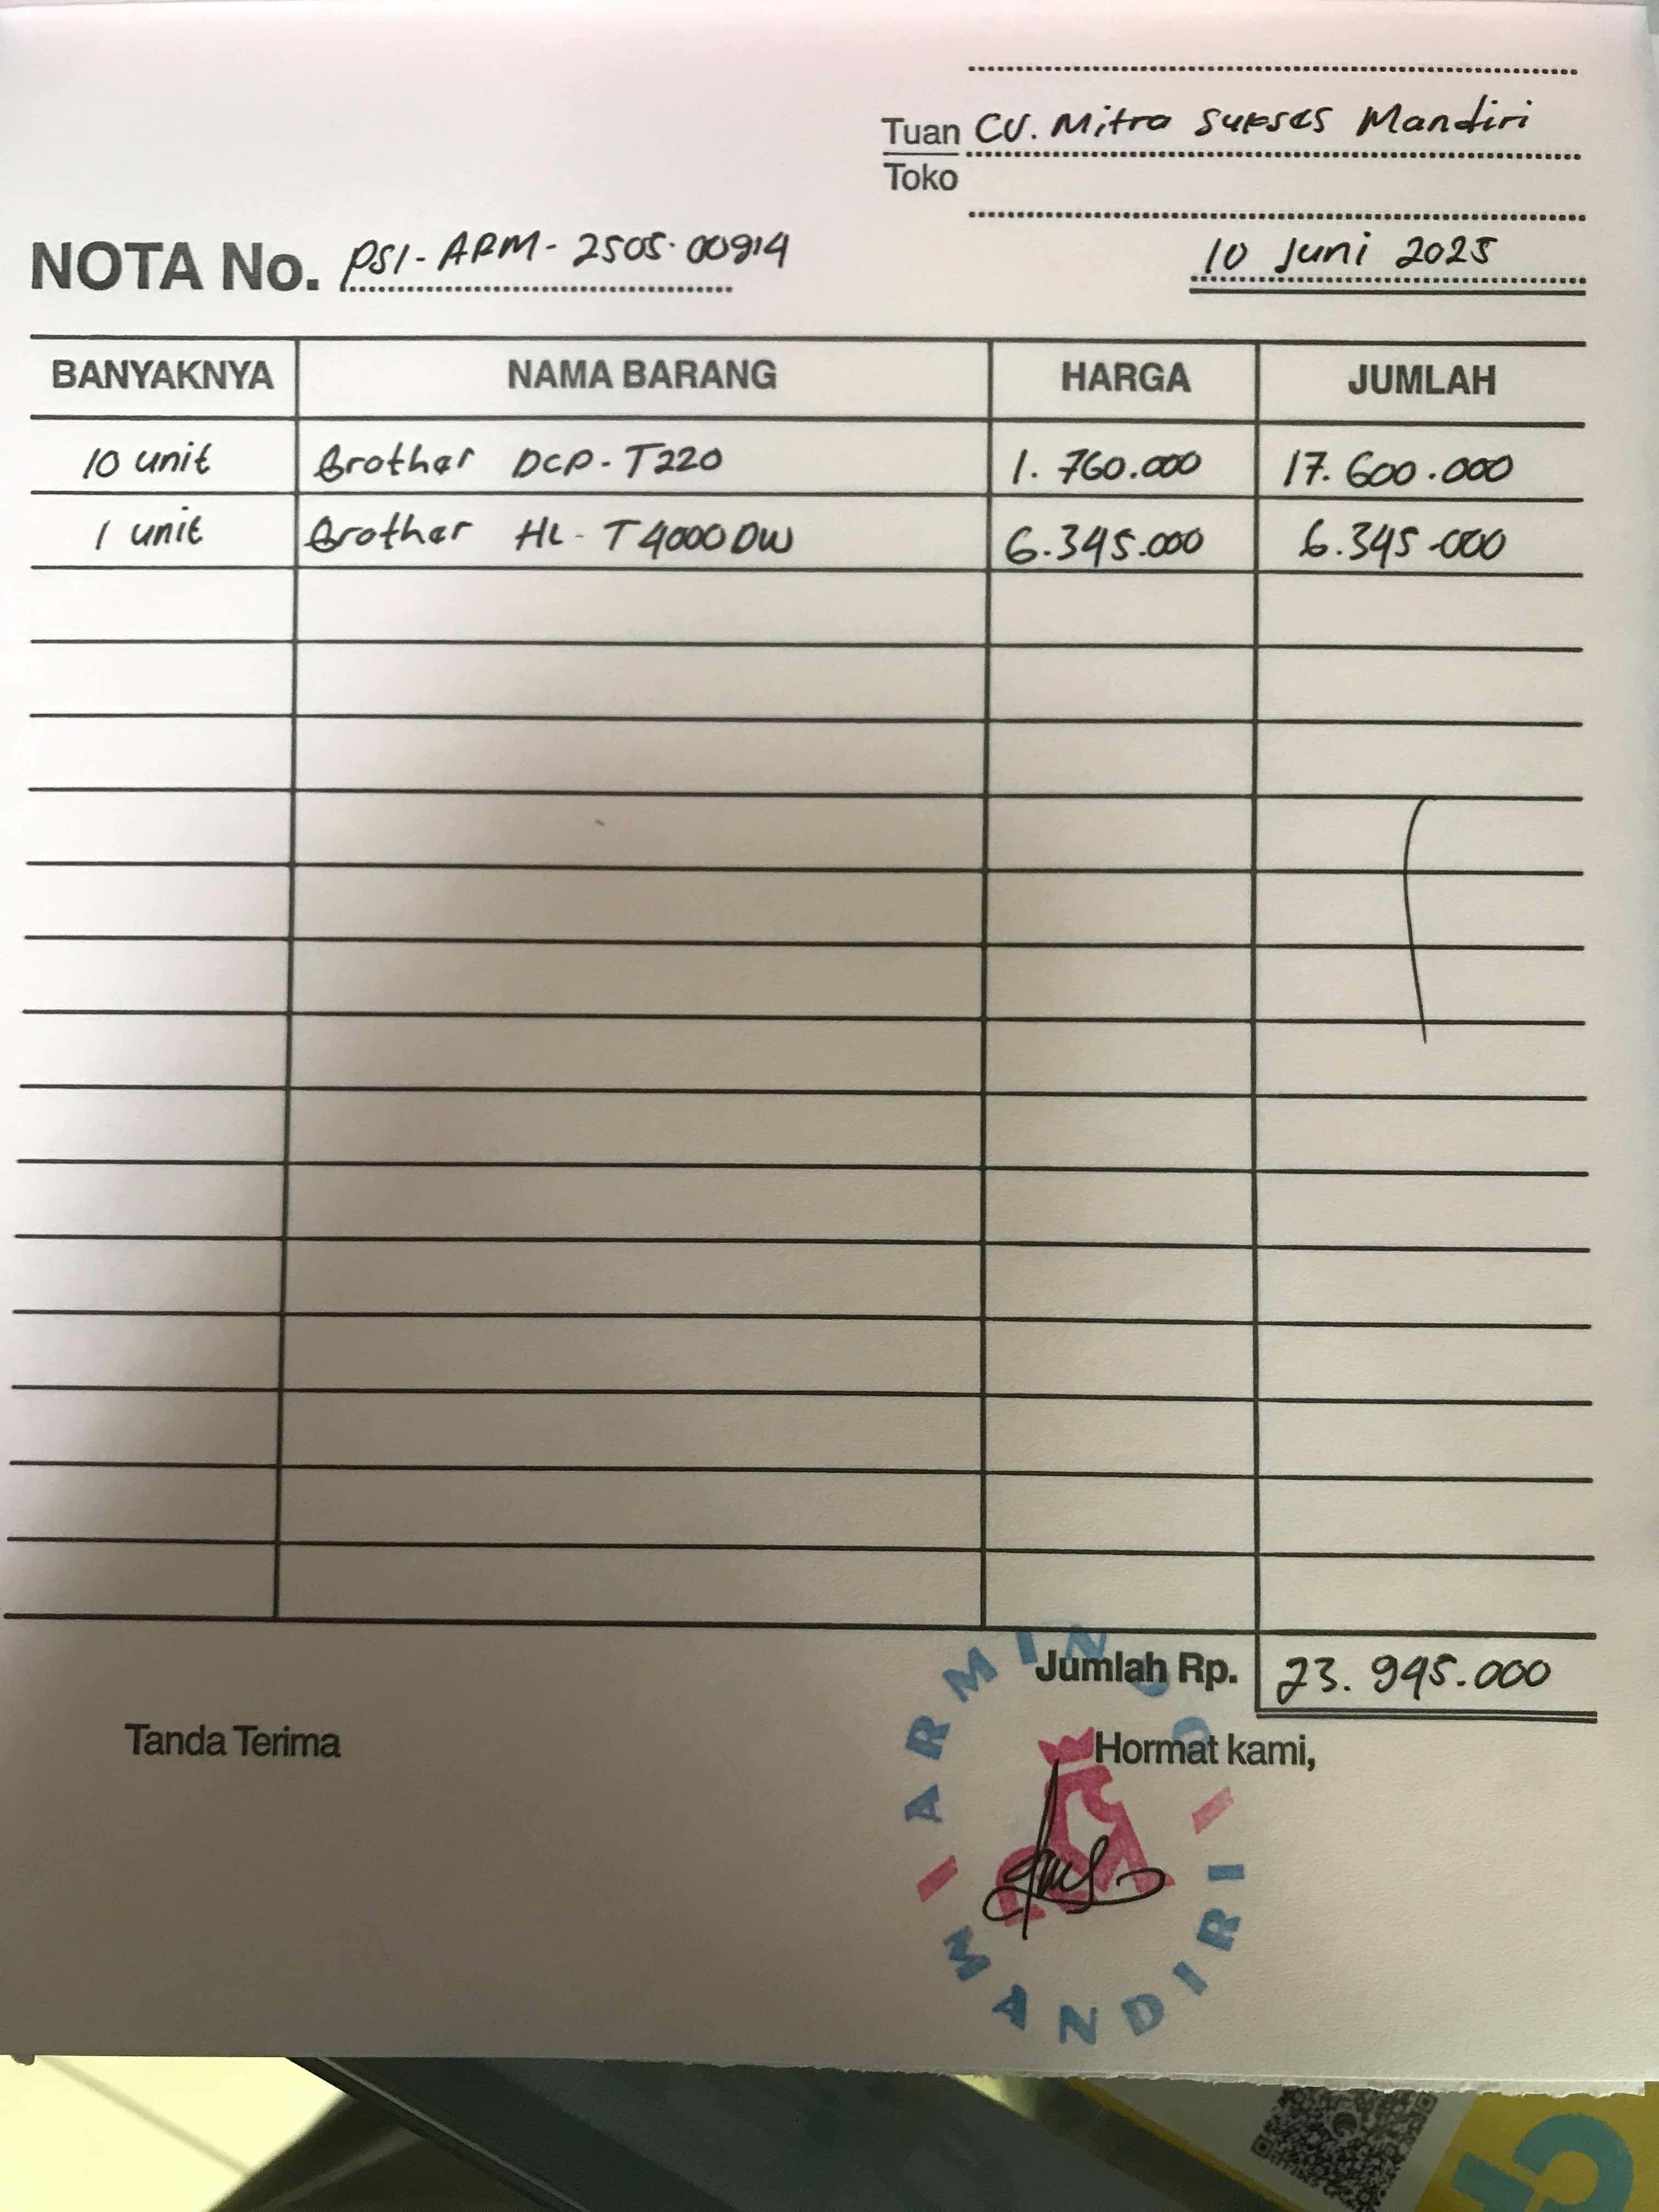 Tuan CV. Mitra Sukses Mandiri
Toko
NOTA No. PSI-ARM-2505-00914
10 Juni 2025
BANYAKNYA NAMA BARANG HARGA JUMLAH
10 unit Brother DCP-T220 1.760.000 17.600.000
1 unit Brother HL-T4000DW 6.345.000 6.345.000
Jumlah Rp. 23.945.000
Tanda Terima
Hormat kami,
ARMINDO
MANDIRI